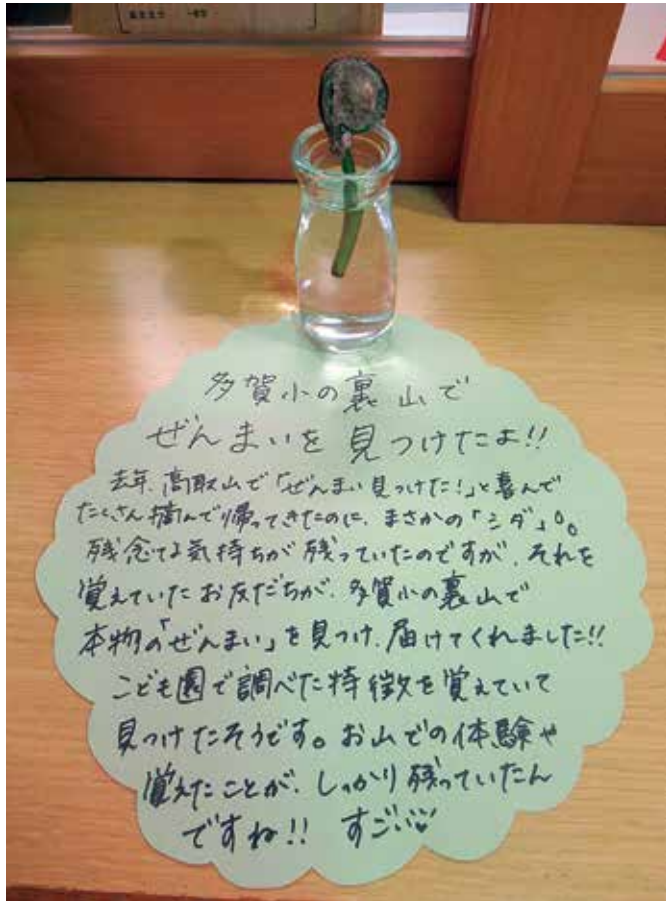 多賀小の裏山で
ぜんまいを見つけたよ!!
去年、高取山で「ぜんまい見つけた!」と喜んで
たくさん摘んで帰ってきたのに、まさかの「シダ」。。
残念な気持ちが残っていたのですが、それを
覚えていたお友だちが、多賀小の裏山で
本物の「ぜんまい」を見つけ、届けてくれました!!
こども園で調べた特徴を覚えていて
見つけたそうです。お山での体験や
覚えたことが、しっかり残っていたん
ですね!! すごい♡